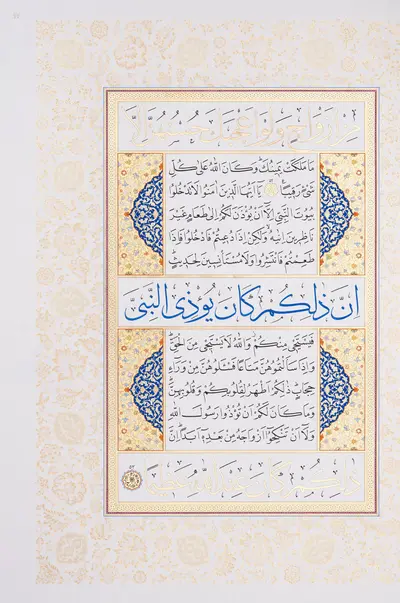 مِنْ اَزْوَاجٍ وَلَوْ اَعْجَبَكَ حُسْنُهُنَّ اِلَّا
مَا مَلَكَتْ يَمِينُكَ وَكَانَ اللّٰهُ عَلٰى كُلِّ
شَیْءٍ رَقِيبًا يَا اَيُّهَا الَّذِينَ اٰمَنُوا لَا تَدْخُلُوا
بُيُوتَ النَّبِيِّ اِلَّا اَنْ يُؤْذَنَ لَكُمْ اِلٰى طَعَامٍ غَيْرَ
نَاظِرِينَ اِنٰيهُ وَلٰكِنْ اِذَا دُعِيتُمْ فَادْخُلُوا فَاِذَا
طَعِمْتُمْ فَانْتَشِرُوا وَلَا مُسْتَأْنِسِينَ لِحَدِيثٍ
اِنَّ ذٰلِكُمْ كَانَ يُؤْذِى النَّبِيَّ
فَيَسْتَحْيِ مِنْكُمْ وَاللّٰهُ لَا يَسْتَحْيِ مِنَ الْحَقِّ
وَاِذَا سَاَلْتُمُوهُنَّ مَتَاعًا فَسْـَٔلُوهُنَّ مِنْ وَرَاءِ
حِجَابٍ ذٰلِكُمْ اَطْهَرُ لِقُلُوبِكُمْ وَقُلُوبِهِنَّ
وَمَا كَانَ لَكُمْ اَنْ تُؤْذُوا رَسُولَ اللّٰهِ
وَلَا اَنْ تَنْكِحُوا اَزْوَاجَهُ مِنْ بَعْدِهِ اَبَدًا اِنَّ
ذٰلِكُمْ كَانَ عِنْدَ اللّٰهِ عَظِيمًا